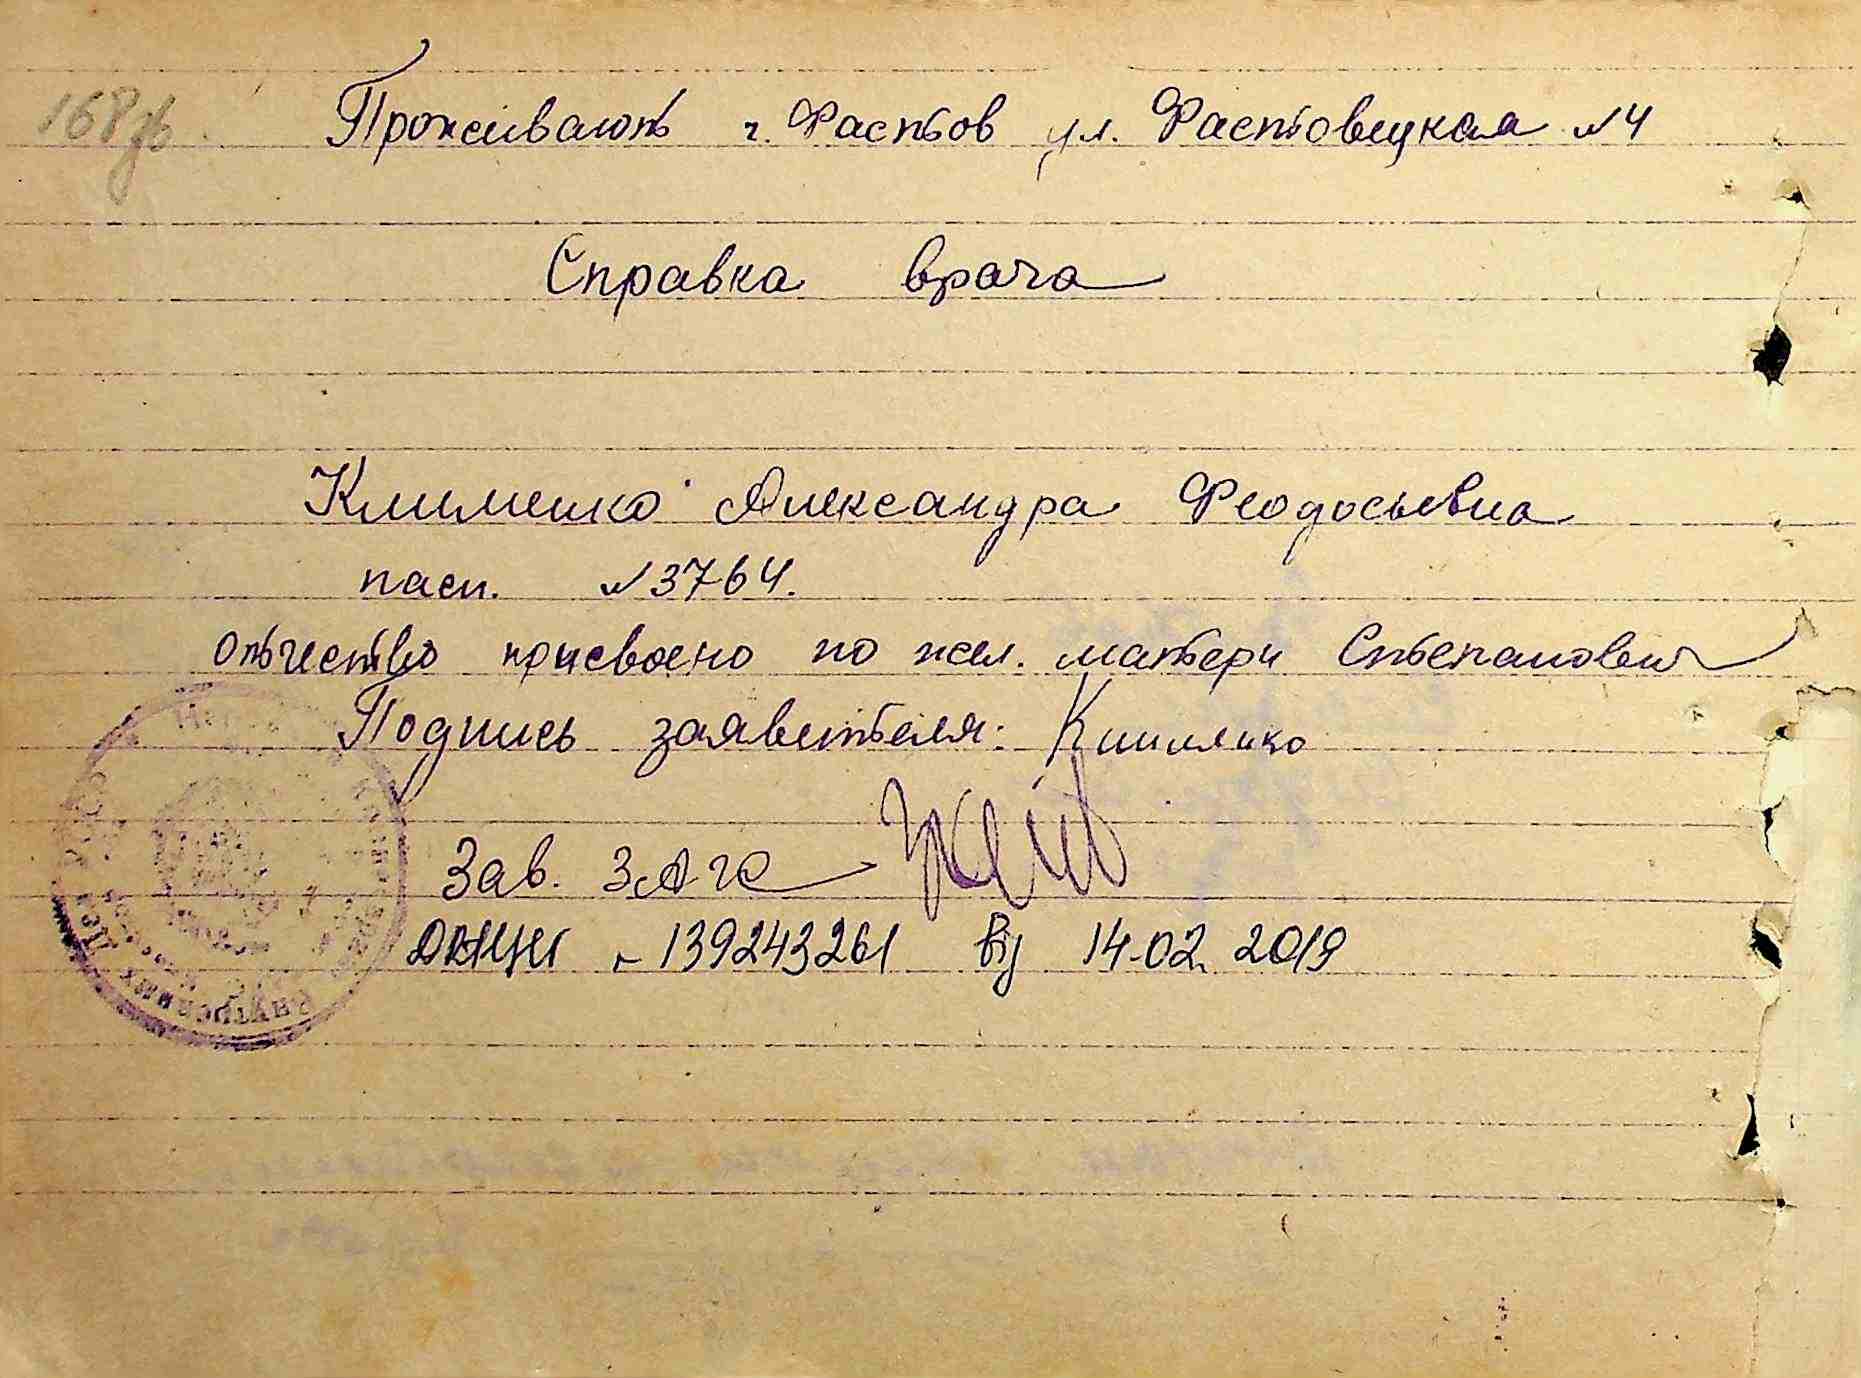 168 зв.
Проживают г. Фастов ул. Фастовецкая №4
Справка врача
Клименко Александра Феодосьевна
пасп. №3764.
отчество присвоено по жел. матери Степанович
Подпись заявителя: Клименко
Зав. ЗАГС
139243261 від 14.02.2019